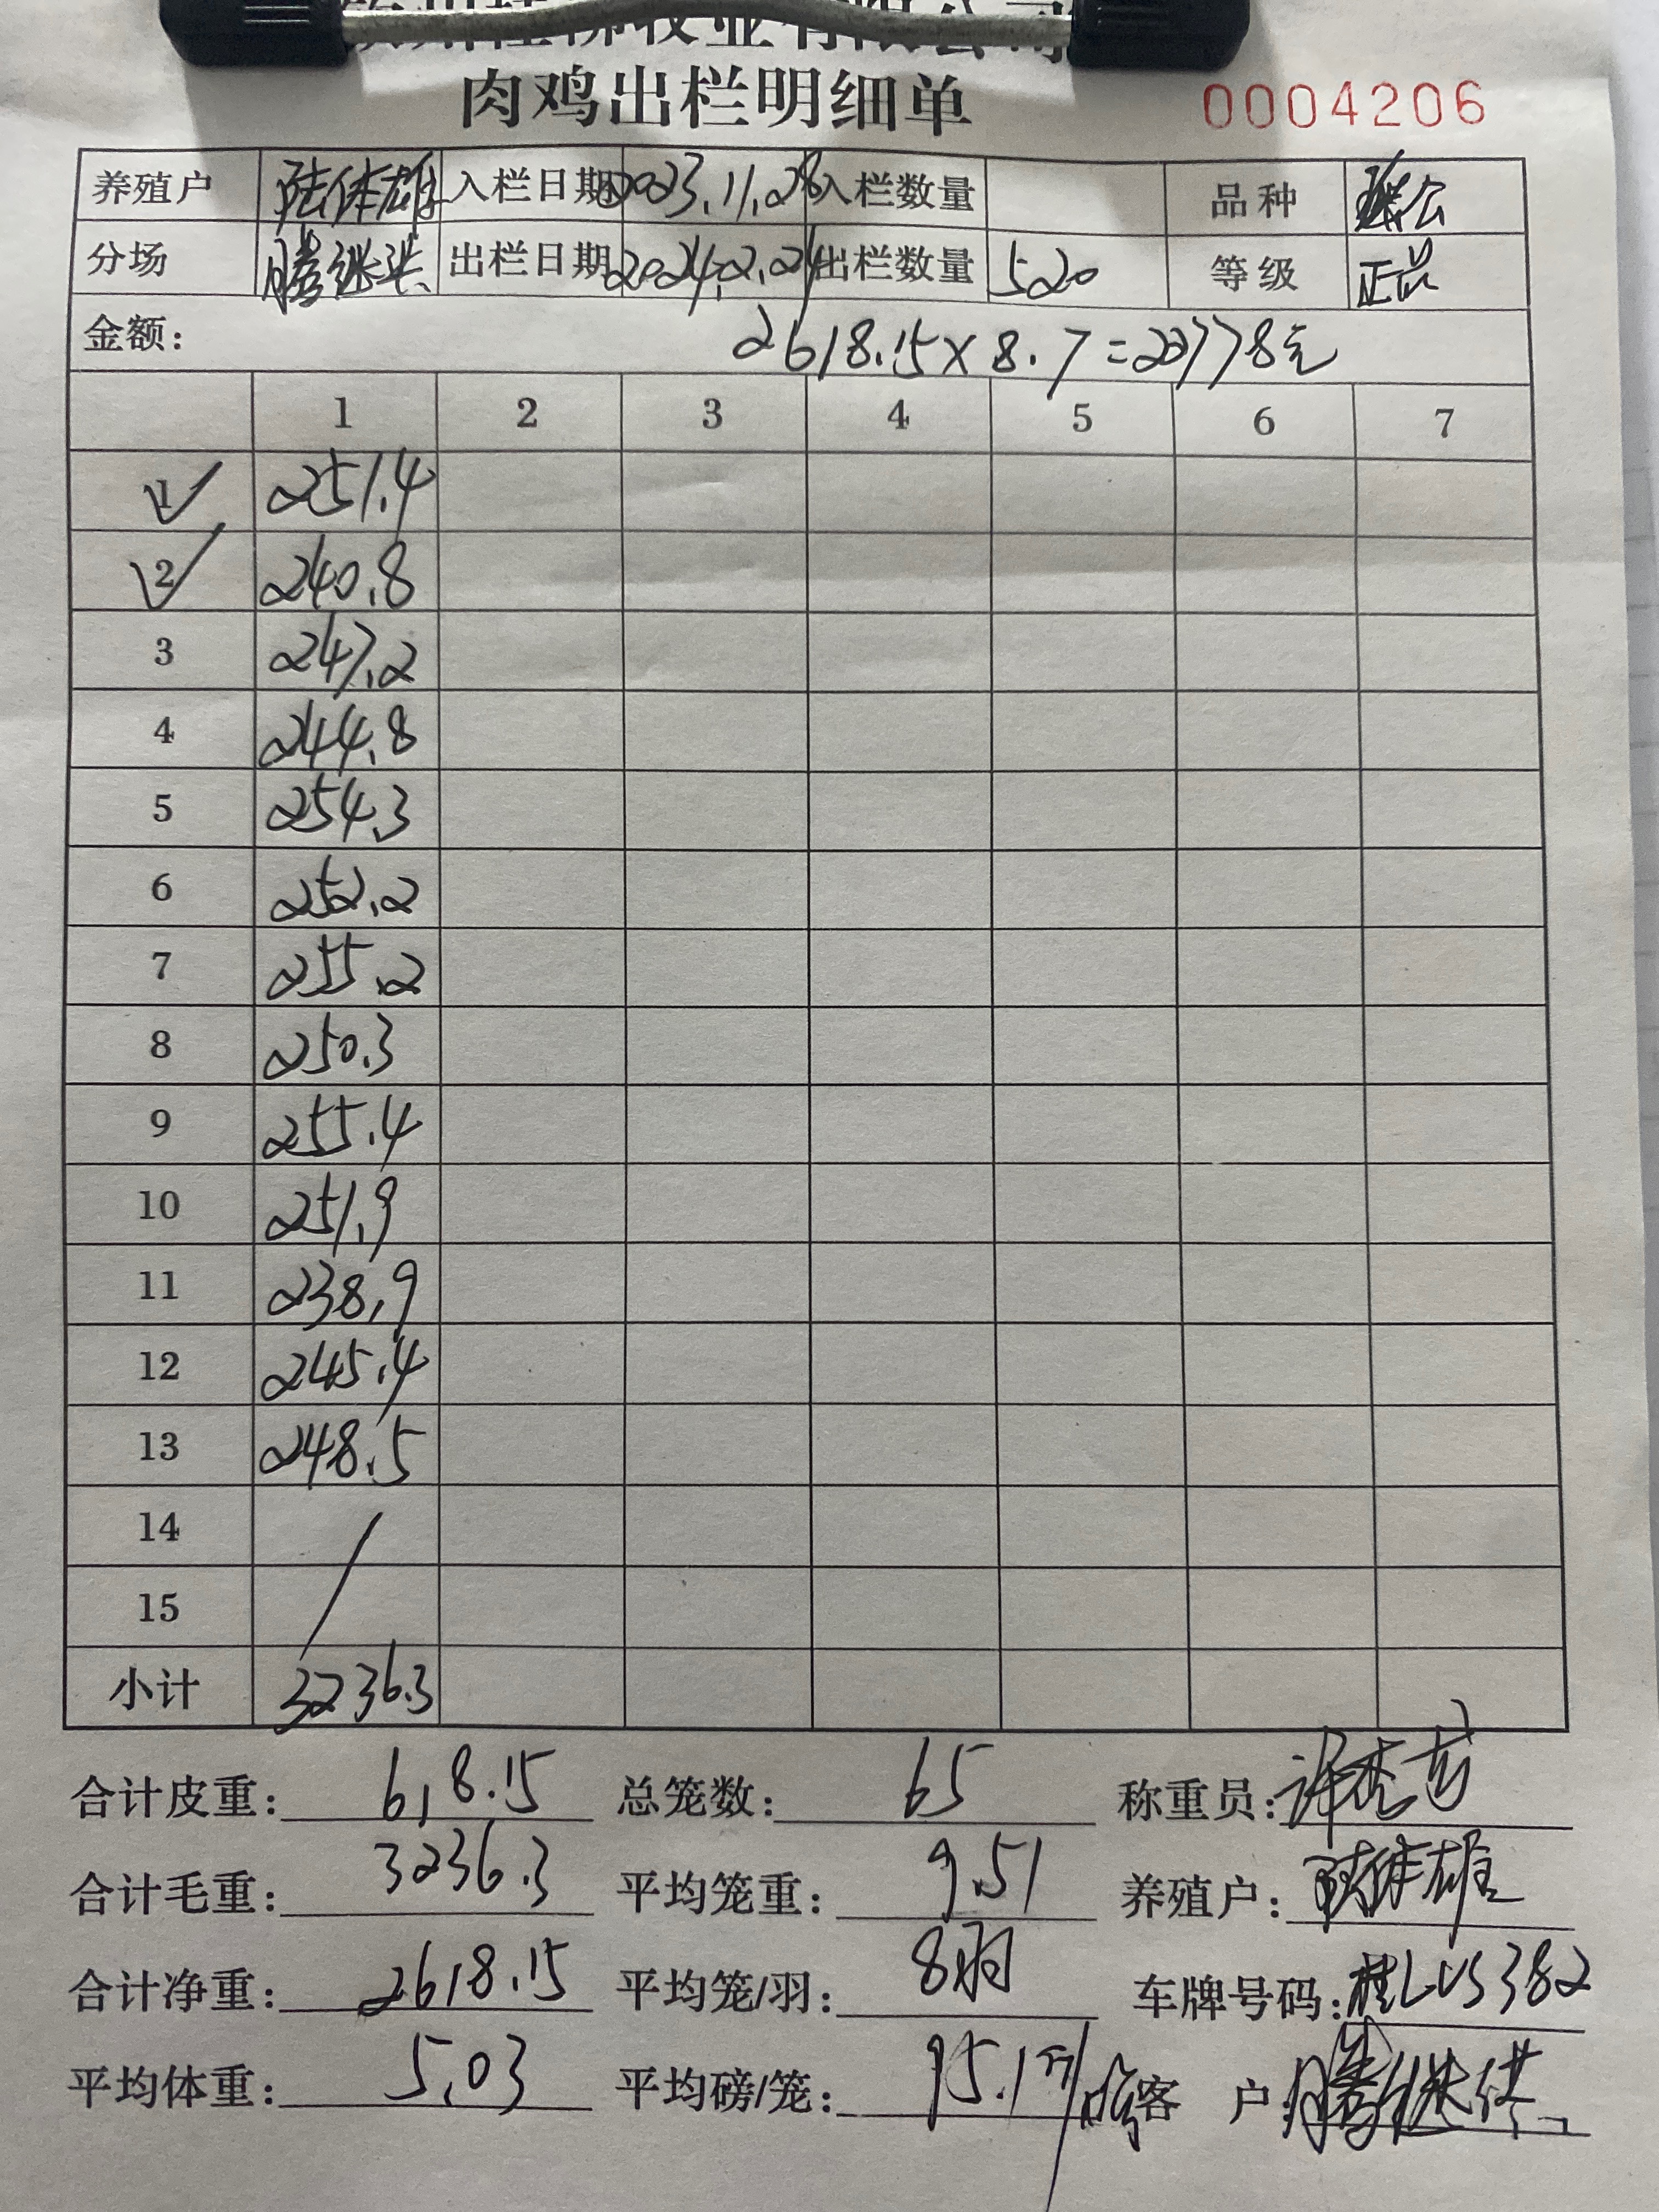 牧业有限公司
肉鸡出栏明细单 0004206
养殖户 陆体雄 入栏日期 2023.11.28 入栏数量 品种
分场 出栏日期 2024.2.24 出栏数量 520 等级 正品
金额: 2618.15×8.7=22778元
1 2 3 4 5 6 7
1 251.4
2 240.8
3 247.2
4 244.8
5 254.3
6 252.2
7 255.2
8 250.3
9 255.4
10 251.9
11 238.9
12 245.4
13 248.5
14
15
小计 3236.3
合计皮重: 618.15 总笼数: 65 称重员:
合计毛重: 3236.3 平均笼重: 9.51 养殖户: 陆体雄
合计净重: 2618.15 平均笼/羽: 8羽 车牌号码: 桂LVS382
平均体重: 5.03 平均磅/笼: 95.1 客 户: